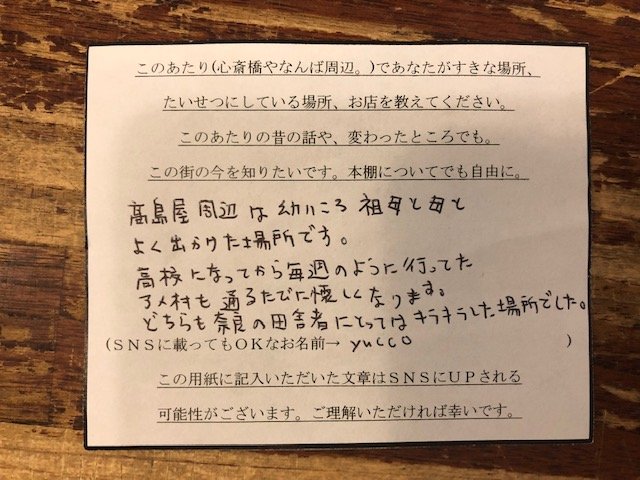 このあたり(心斎橋やなんば周辺。)であなたがすきな場所、
たいせつにしている場所、お店を教えてください。
このあたりの昔の話や、変わったところでも。
この街の今を知りたいです。本棚についてでも自由に。
髙島屋周辺は幼いころ祖母と母と
よく出かけた場所です。
高校になってから毎週のように行ってた
アメ村も通るたびに懐しくなります。
どちらも奈良の田舎者にとってはキラキラした場所でした。
(SNSに載ってもOKなお名前→ yucco )
この用紙に記入いただいた文章はSNSにUPされる
可能性がございます。ご理解いただければ幸いです。